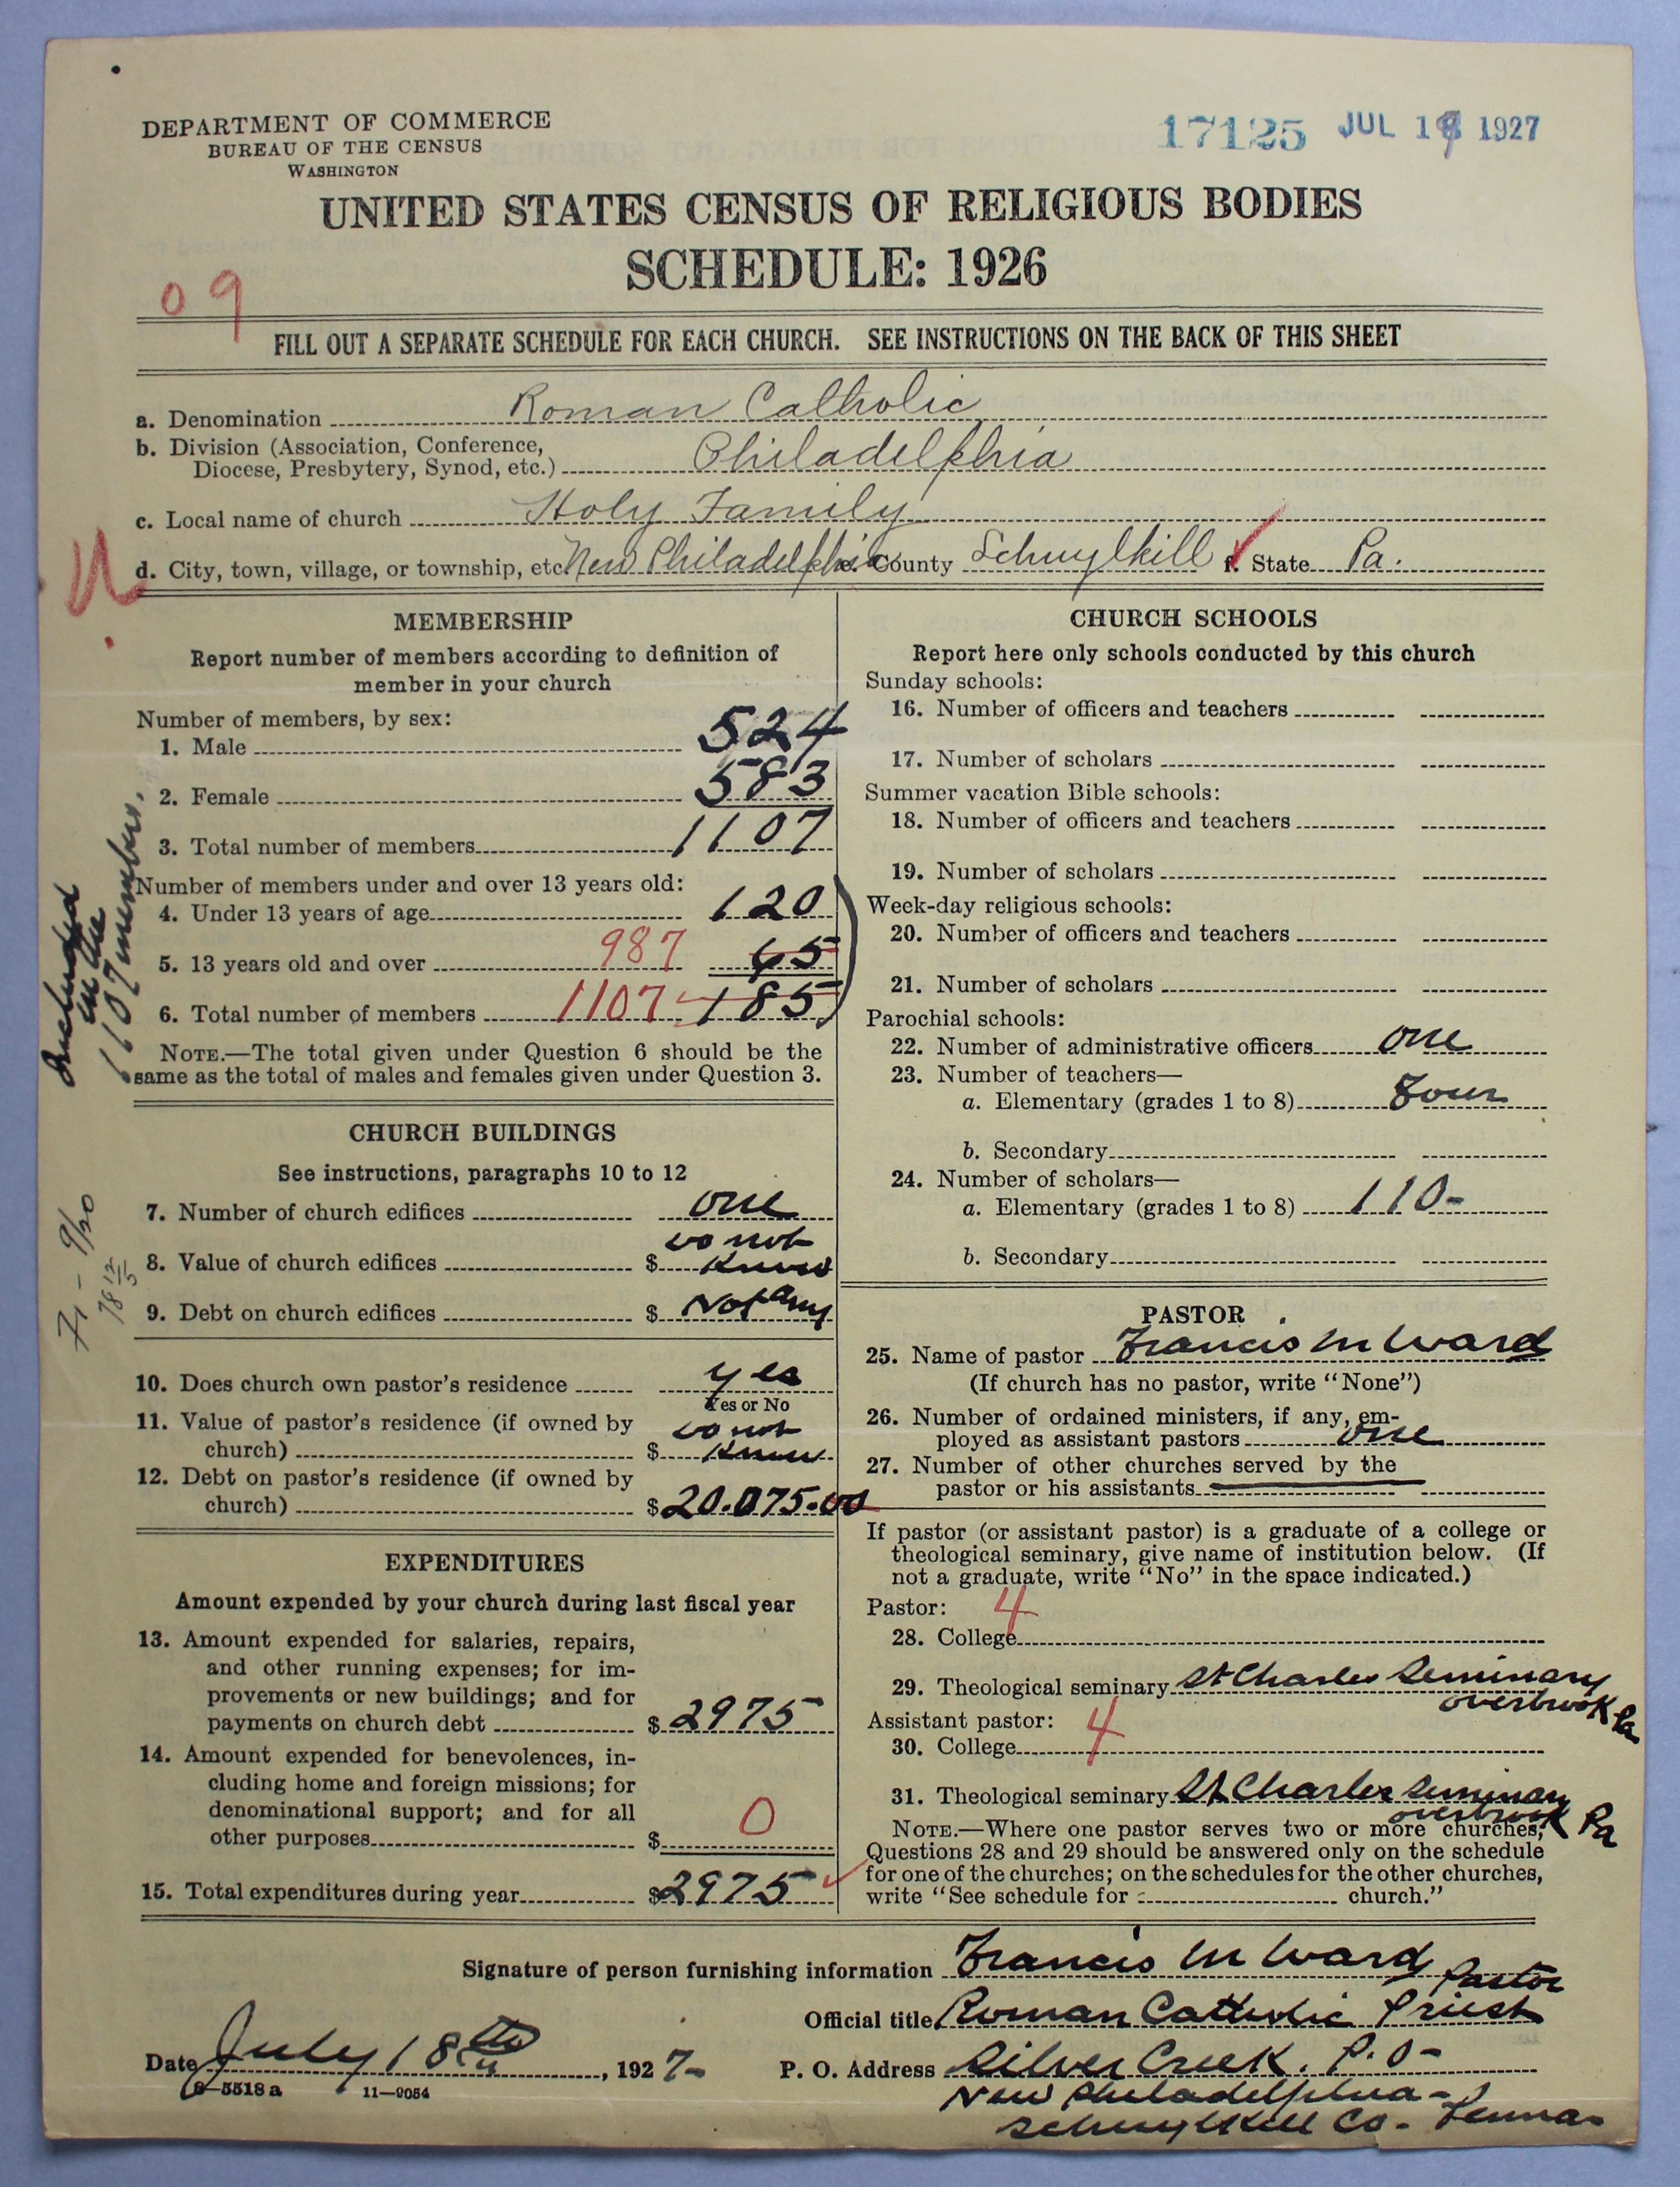 DEPARTMENT OF COMMERCE
BUREAU OF THE CENSUS
WASHINGTON
17125 JUL 19 1927
UNITED STATES CENSUS OF RELIGIOUS BODIES
SCHEDULE: 1926
09
FILL OUT A SEPARATE SCHEDULE FOR EACH CHURCH. SEE INSTRUCTIONS ON THE BACK OF THIS SHEET
a. Denomination Roman Catholic
b. Division (Association, Conference,
Diocese, Presbytery, Synod, etc.) Philadelphia
c. Local name of church Holy Family
d. City, town, village, or township, etc. New Philadelphia e. County Schuylkill f. State Pa.
MEMBERSHIP
Report number of members according to definition of
member in your church
Number of members, by sex:
1. Male 524
2. Female 583
3. Total number of members 1107
Number of members under and over 13 years old:
4. Under 13 years of age 120
5. 13 years old and over 987 65
6. Total number of members 1107 185
Included
in the
1107 members.
NOTE.—The total given under Question 6 should be the
same as the total of males and females given under Question 3.
CHURCH BUILDINGS
See instructions, paragraphs 10 to 12
7. Number of church edifices one
8. Value of church edifices $ do not know
9. Debt on church edifices $ Not any
71 - 9/20
78 12/5
10. Does church own pastor's residence yes
Yes or No
11. Value of pastor's residence (if owned by
church) $ do not know
12. Debt on pastor's residence (if owned by
church) $ 20.075.00
EXPENDITURES
Amount expended by your church during last fiscal year
13. Amount expended for salaries, repairs,
and other running expenses; for im-
provements or new buildings; and for
payments on church debt $ 2975
14. Amount expended for benevolences, in-
cluding home and foreign missions; for
denominational support; and for all
other purposes $ 0
15. Total expenditures during year $ 2975
CHURCH SCHOOLS
Report here only schools conducted by this church
Sunday schools:
16. Number of officers and teachers
17. Number of scholars
Summer vacation Bible schools:
18. Number of officers and teachers
19. Number of scholars
Week-day religious schools:
20. Number of officers and teachers
21. Number of scholars
Parochial schools:
22. Number of administrative officers one
23. Number of teachers—
a. Elementary (grades 1 to 8) Four
b. Secondary
24. Number of scholars—
a. Elementary (grades 1 to 8) 110-
b. Secondary
PASTOR
25. Name of pastor Francis M Ward
(If church has no pastor, write "None")
26. Number of ordained ministers, if any, em-
ployed as assistant pastors one
27. Number of other churches served by the
pastor or his assistants
If pastor (or assistant pastor) is a graduate of a college or
theological seminary, give name of institution below. (If
not a graduate, write "No" in the space indicated.)
Pastor: 4
28. College
29. Theological seminary St Charles Seminary
overbrook Pa
Assistant pastor: 4
30. College
31. Theological seminary St Charles Seminary
overbrook Pa
NOTE.—Where one pastor serves two or more churches,
Questions 28 and 29 should be answered only on the schedule
for one of the churches; on the schedules for the other churches,
write "See schedule for church."
Signature of person furnishing information Francis M Ward Pastor
Official title Roman Catholic Priest
Date July 18th, 1927- P. O. Address Silver Creek. P.O-
8—5518a 11—9054
New Philadelphia -
Schuylkill Co- Penna-